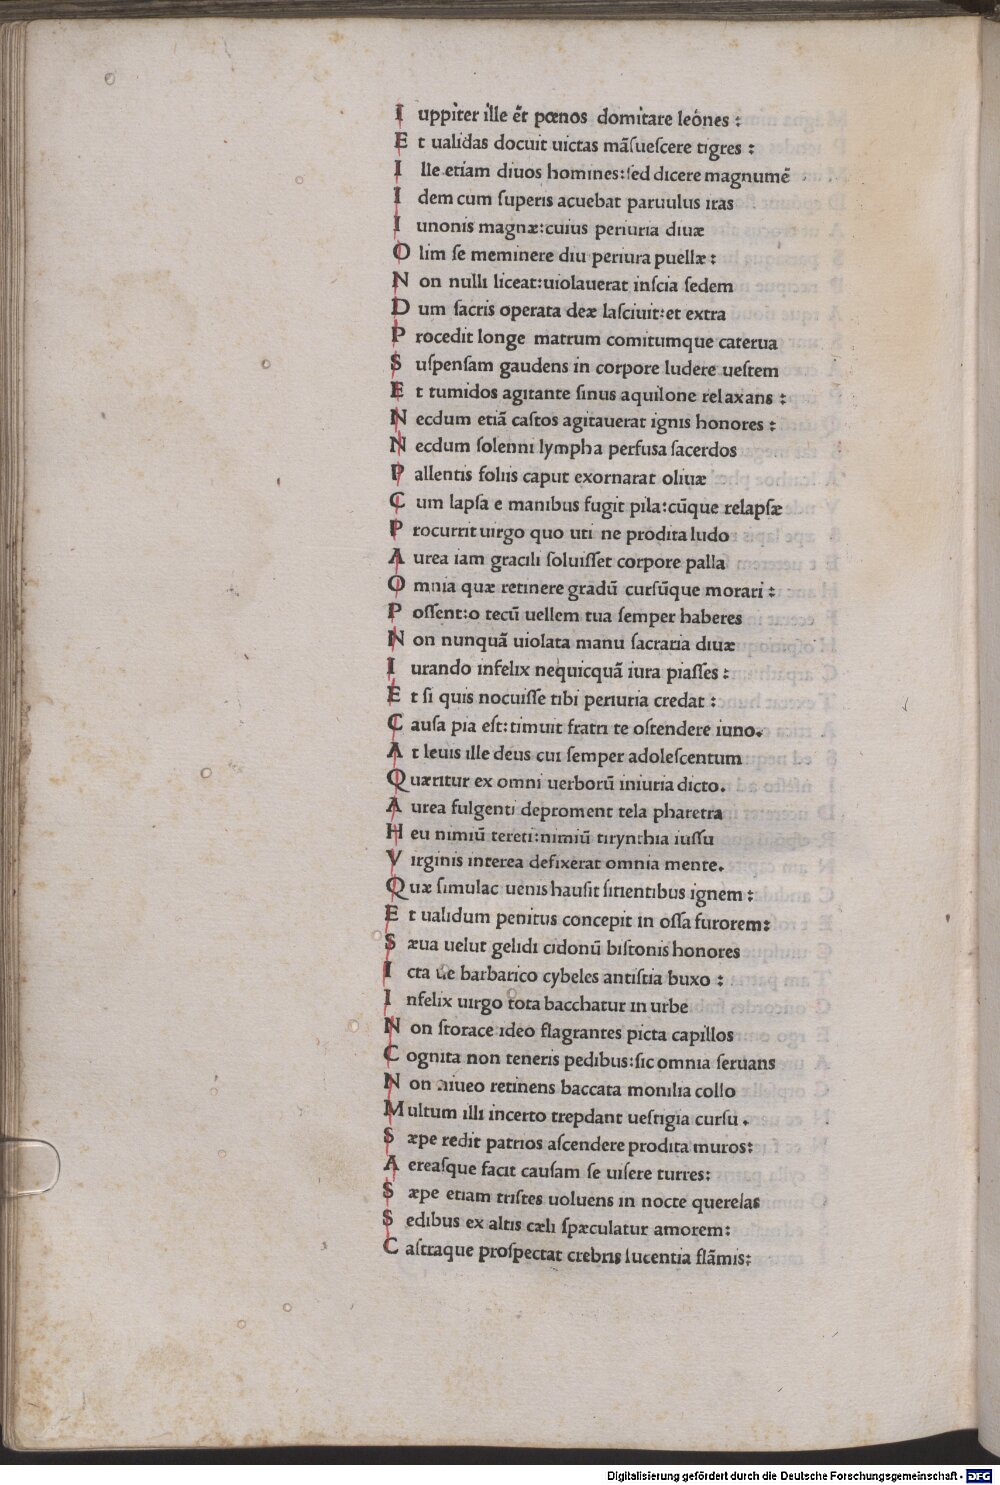 I uppiter ille et̃ pœnos domitare leónes :
E t ualidas docuit uictas mãſueſcere tigres :
I lle etiam diuos homines:ſed dicere magnumẽ
I dem cum ſuperis acuebat paruulus iras
I unonis magnæ:cuius periuria diuæ
O lim ſe meminere diu periura puellæ :
N on nulli liceat:uiolauerat inſcia ſedem
D um ſacris operata deæ laſciuit:et extra
P rocedit longe matrum comitumque caterua
S uſpenſam gaudens in corpore ludere ueſtem
E t tumidos agitante ſinus aquilone relaxans :
N ecdum etiã caſtos agitauerat ignis honores :
N ecdum ſolenni lympha perfuſa ſacerdos
P allentis foliis caput exornarat oliuæ
C um lapſa e manibus fugit pila:cũque relapſæ
P rocurrit uirgo quo uti ne prodita ludo
A urea iam gracili ſoluiſſet corpore palla
O mnia quæ retinere gradũ curſũque morari :
P oſſent:o tecũ uellem tua ſemper haberes
N on nunquã uiolata manu ſacraria diuæ
I urando infelix nequicquã iura piaſſes :
E t ſi quis nocuiſſe tibi periuria credat :
C auſa pia eſt:timuit fratri te oſtendere iuno.
A t leuis ille deus cui ſemper adoleſcentum
Q uæritur ex omni uerborũ iniuria dicto.
A urea fulgenti deproment tela pharetra
H eu nimiũ tereti:nimiũ tirynthia iuſſu
V irginis interea defixerat omnia mente.
Q uæ ſimulac uenis hauſit ſitientibus ignem :
E t ualidum penitus concepit in oſſa furorem:
S æua uelut gelidi cidonũ biſtonis honores
I cta ue barbarico cybeles antiſtia buxo :
I nfelix uirgo tota bacchatur in urbe
N on ſtorace ideo flagrantes picta capillos
C ognita non teneris pedibus:ſic omnia ſeruans
N on niueo retinens baccata monilia collo
M ultum illi incerto trepdant ueſtigia curſu .
S æpe redit patrios aſcendere prodita muros:
A ereaſque facit cauſam ſe uiſere turres:
S æpe etiam triſtes uoluens in nocte querelas
S edibus ex altis cæli ſpæculatur amorem:
C aſtraque proſpectat crebris lucentia flãmis:
Digitalisierung gefördert durch die Deutsche Forschungsgemeinschaft - DFG